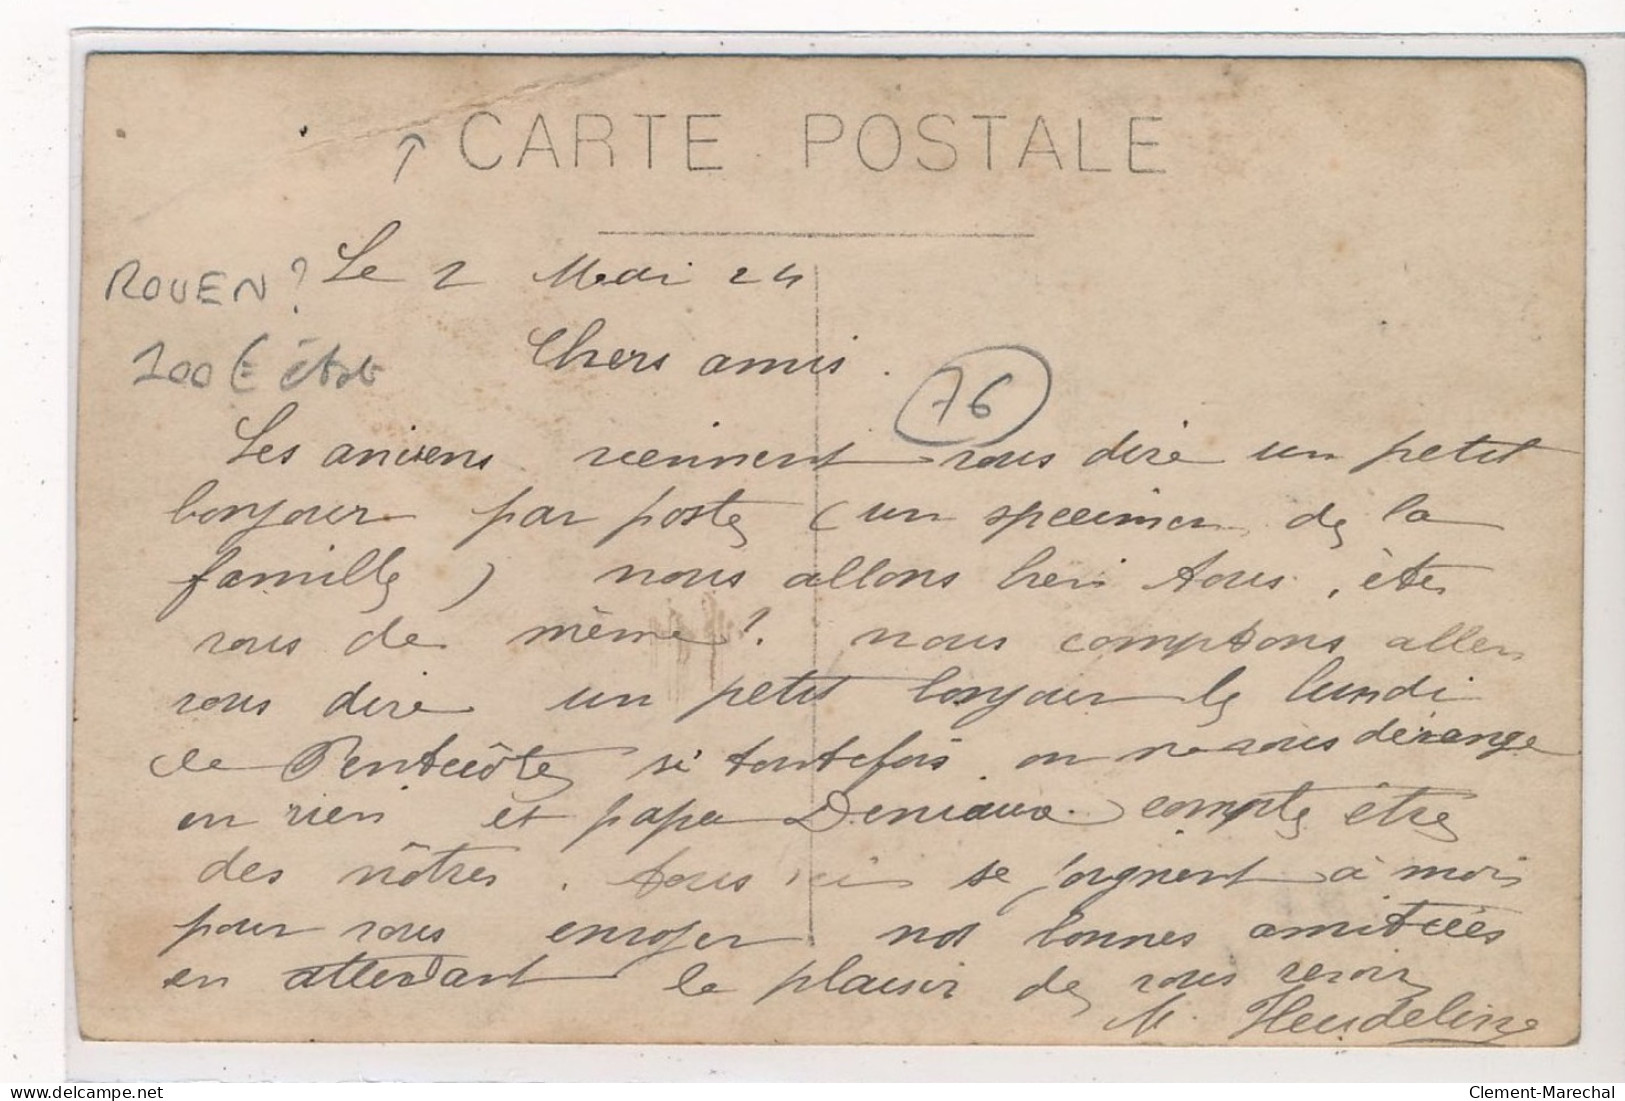 CARTE POSTALE
ROUEN ? Le 2 Mai 24
100 € état
Chers amis.
76
Les anciens viennent vous dire un petit
bonjour par poste ( un specimen de la
famille ) nous allons bien tous, êtes
vous de même ? nous comptons aller
vous dire un petit bonjour le lundi
de Pentecôte si toutefois on ne vous dérange
en rien et papa Deniaux compte être
des nôtres. tous ici se joignent à moi
pour vous envoyer nos bonnes amitiées
en attendant le plaisir de vous revoir
M. Heudeline
www.delcampe.net
Clement-Marechal